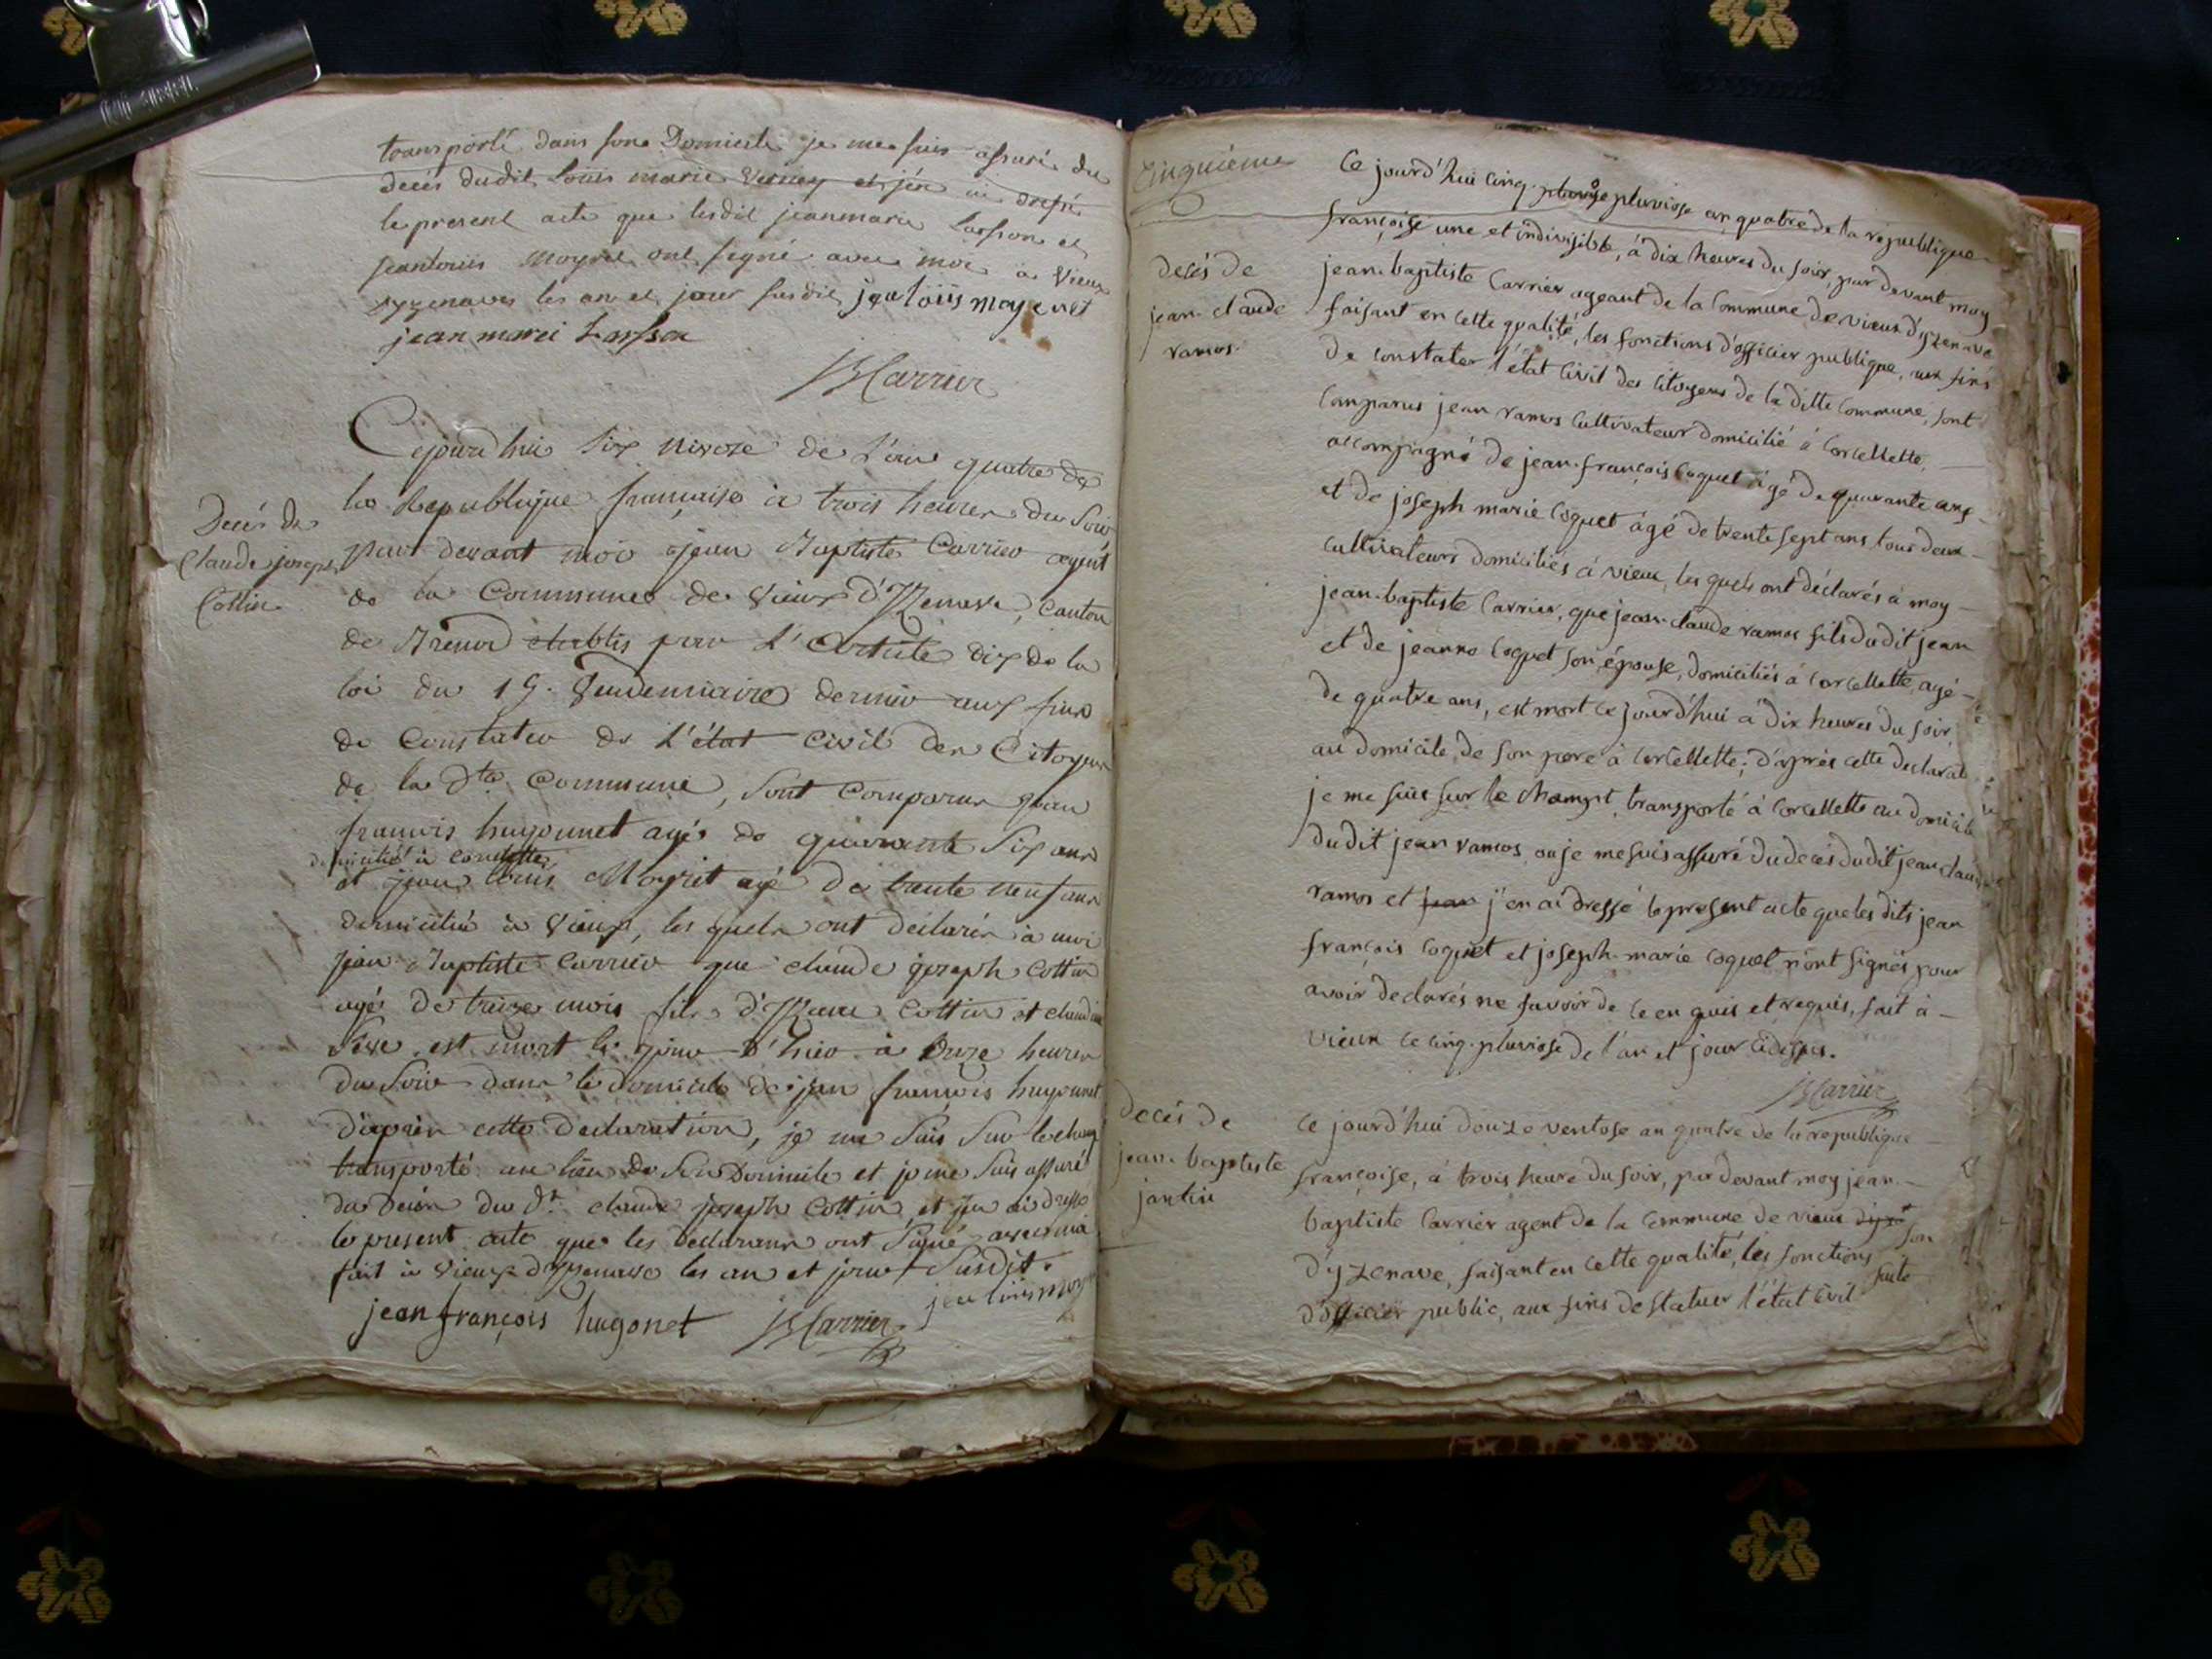 transporté dans son Domicile je me suis assuré du
deces dudit Louis marie et j'en ai dressé
le present acte que lesdit jeanmarie Lasson et
jeanlouis Moyret ont signé avec moi a Vieux
dyzenaves les an et jour susdit jea loüis mayeret
jean marei Lasson
JBCarrier
Cejourd'hui Six Nivoze de L'an quatre de
la Republique francaise à trois heures du Soir
par devant moi jean Baptiste Carrier agent
de la Commune de Vieux d'Izenave, Canton
de Brenod etablis par L'Article dix de la
loi du 19. Vendemiaire dernier aux fins
de Constater de L'état Civil des Citoyens
de la dte Commune, Sont Comparus jean
francois hugonnet agé de quarante Six ans
domicilié à Corcelette
et jean Louis Moyret agé de trente neuf ans
domicilié à Vieux, les quels ont déclarés à moi
jean Baptiste Carrier que claude joseph Cottin
agé de traize mois fils d' Cottin et claudine
est mort le jour d'hier à Onze heures
du Soir dans le domicile de jean francois hugonnet
d'après cette Declaration, je me Suis Sur le champ
transporté au lieu de Son Domicile et je me Suis assuré
du decès du dt. claude joseph Cottin et j'en ai dressé
le present acte que les declarans ont Signé avec moi
fait à Vieux d'Izenave les an et jour Susdit.
jean françois hugonet JBCarrier jea loüis moy
Decés de
Claude joseph
Cottin
Cinquieme
Ce jourd'hui Cinq. pluviose pluviose an quatre de la republique
françoise une et indivisible, à dix heures du soir, par devant moy
jean-baptiste Carrier ageant de la Commune de vieux d'yzenave
faisant en cette qualité, les fonctions d'officier publique, aux fins
de constater l'état Civil des Citoyens de la ditte Commune, sont
Comparus jean ramos Cultivateur domicilié à Corcellette,
accompagné de jean-françois Coquet âgé de quarante ans
et de joseph marie Coquet âgé de trente sept ans tous deux
Cultivateurs domiciliés à vieux, les quels ont déclarés à moy
jean-baptiste Carrier, que jean-claude ramos fils dudit jean
et de jeanne Coquet son épouse, domiciliés à Corcellette, agé
de quatre ans, est mort ce jourd'hui à dix heures du soir,
au domicile de son pere à Corcellette; d'après cette declarat
je me suis sur le champt transporté à Corcellette au domicile
dudit jean ramos, ou je me suis assuré du decés dudit jean claude
ramos et jean j'en ai dressé le present acte que les dits jean
françois Coquet et joseph-marie Coquet n'ont signés pour
avoir declarés ne savoir de ce en quis et requis, fait à
vieux ce cinq-pluviose de l'an et jour
JBCarrier
decés de
jean-claude
ramos.
Ce jourd'hui douze ventose an quatre de la republique
françoise, à trois heure du soir, par devant moy jean-
baptiste Carrier agent de la Commune de vieux
d'yzenave, faisant en cette qualité, les fonctions
d'officier public, aux fins de statuer l'état Civil
decés de
jean-baptiste
jantin